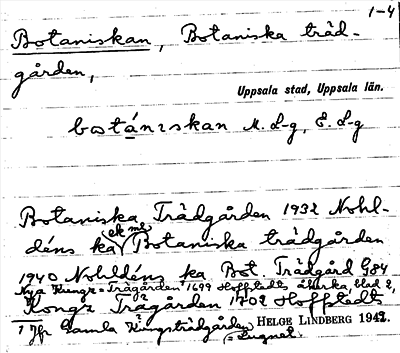 1-4
Botaniskan, Botaniska träd-
gården,
Uppsala stad, Uppsala län.
M. L-g, E. L-g
Botaniska Trädgården 1932 Nohl-
déns ka Botaniska trädgården
ek me
1940 Nohldéns ka Bot. Trädgård G84
Nya Kungz-Trägården 1699 Hoffstedts åkerka blad 2,
Kongz Trägården 1702 Hoffstedts
Jfr Gamla Kungsträdgården
HELGE LINDBERG 1942.
= Lugnet.